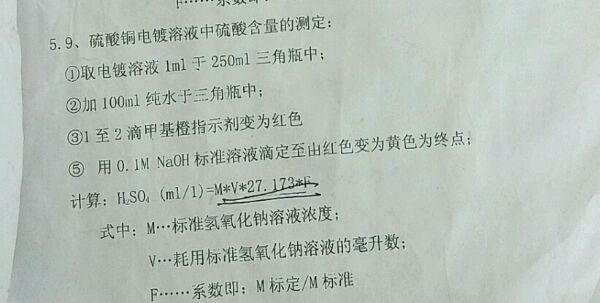 F……系数即:
5.9、硫酸铜电镀溶液中硫酸含量的测定:
①取电镀溶液 1ml 于 250ml 三角瓶中;
②加 100ml 纯水于三角瓶中;
③1 至 2 滴甲基橙指示剂变为红色
⑤ 用 0.1M NaOH 标准溶液滴定至由红色变为黄色为终点;
计算: H₂SO₄ (ml/l)=M*V*27.173*F
式中: M…标准氢氧化钠溶液浓度;
V…耗用标准氢氧化钠溶液的毫升数;
F……系数即: M 标定/M 标准